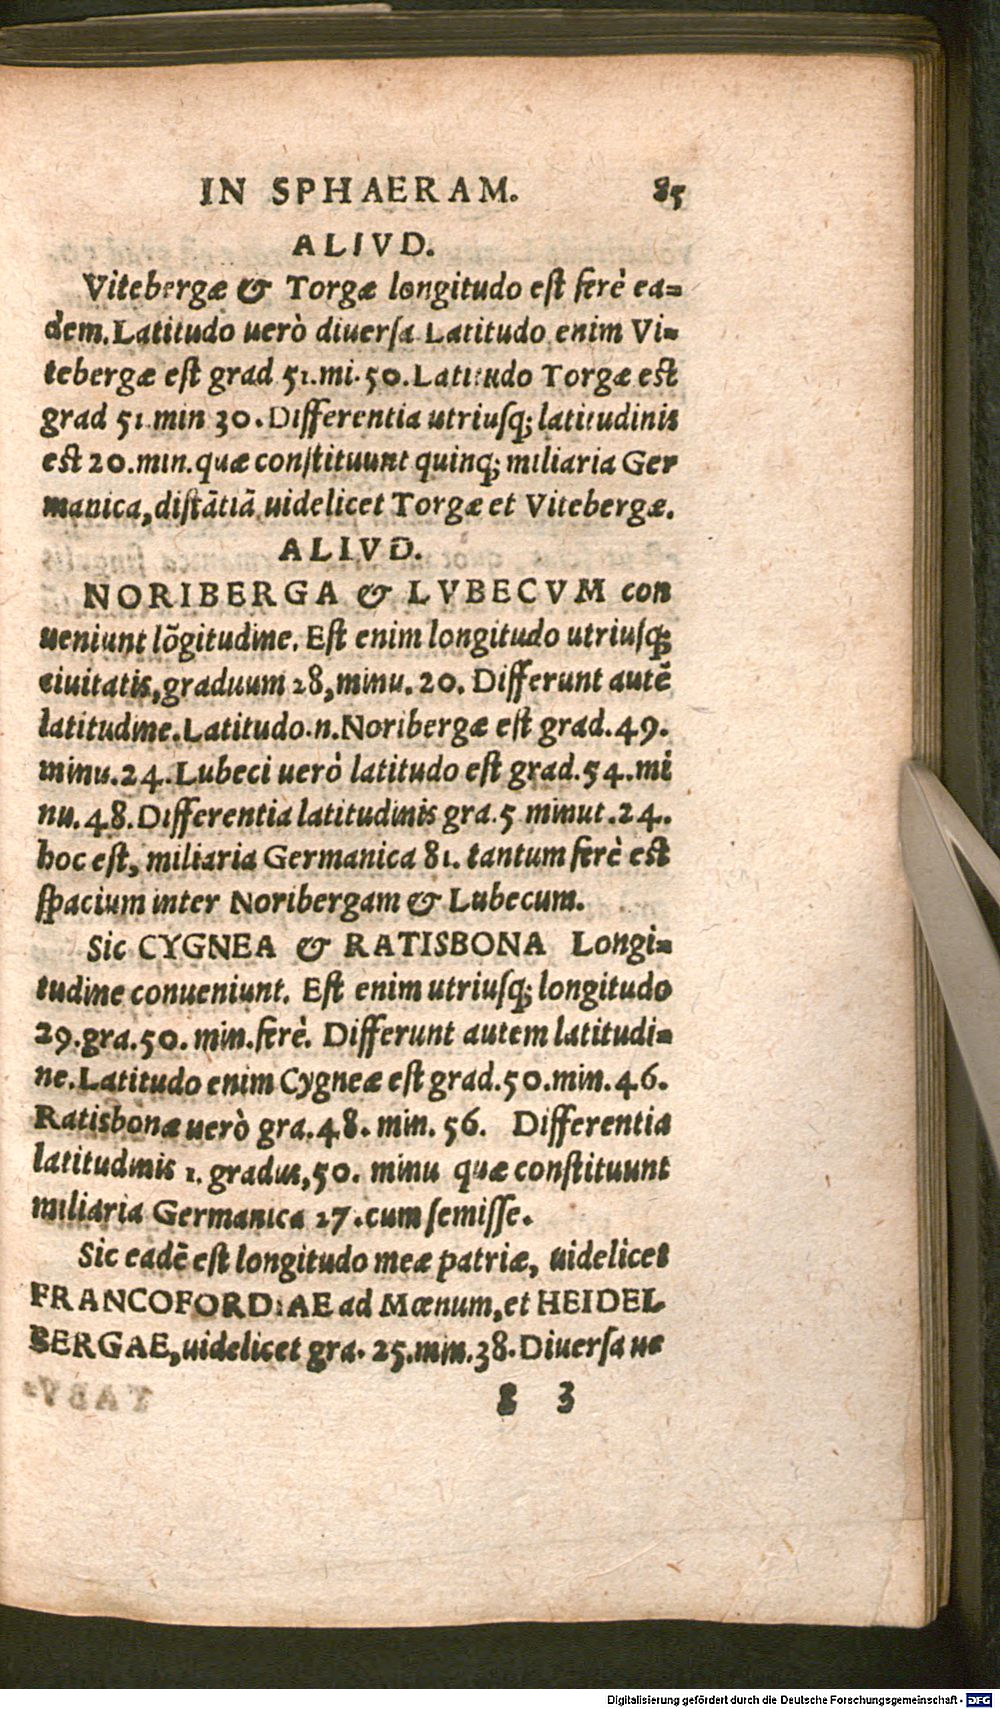 IN SPHAERAM. 85
ALIVD.
Vitebergæ & Torgæ longitudo est ferè ea=
dem. Latitudo uerò diuersa Latitudo enim Vi=
tebergæ est grad 51. mi. 50. Latitudo Torgæ est
grad 51 min 30. Differentia utriusq; latitudinis
est 20. min. quæ constituunt quinq; miliaria Ger
manica, distãtiã uidelicet Torgæ et Vitebergæ.
ALIVD.
NORIBERGA & LVBECVM con
ueniunt lõgitudine. Est enim longitudo utriusq;
ciuitatis, graduum 28, minu. 20. Differunt autẽ
latitudine. Latitudo .n. Noribergæ est grad. 49.
minu. 24. Lubeci uerò latitudo est grad. 54. mi
nu. 48. Differentia latitudinis gra. 5 minut. 24.
hoc est, miliaria Germanica 81. tantum ferè est
spacium inter Noribergam & Lubecum.
Sic CYGNEA & RATISBONA Longi=
tudine conueniunt. Est enim utriusq; longitudo
29. gra. 50. min. ferè. Differunt autem latitudi=
ne. Latitudo enim Cygneæ est grad. 50. min. 46.
Ratisbonæ uerò gra. 48. min. 56. Differentia
latitudinis 1. gradus, 50. minu quæ constituunt
miliaria Germanica 27. cum semisse.
Sic eadẽ est longitudo meæ patriæ, uidelicet
FRANCOFORDIAE ad Mœnum, et HEIDEL
BERGAE, uidelicet gra. 25. min. 38. Diuersa ue
3
Digitalisierung gefördert durch die Deutsche Forschungsgemeinschaft - DFG